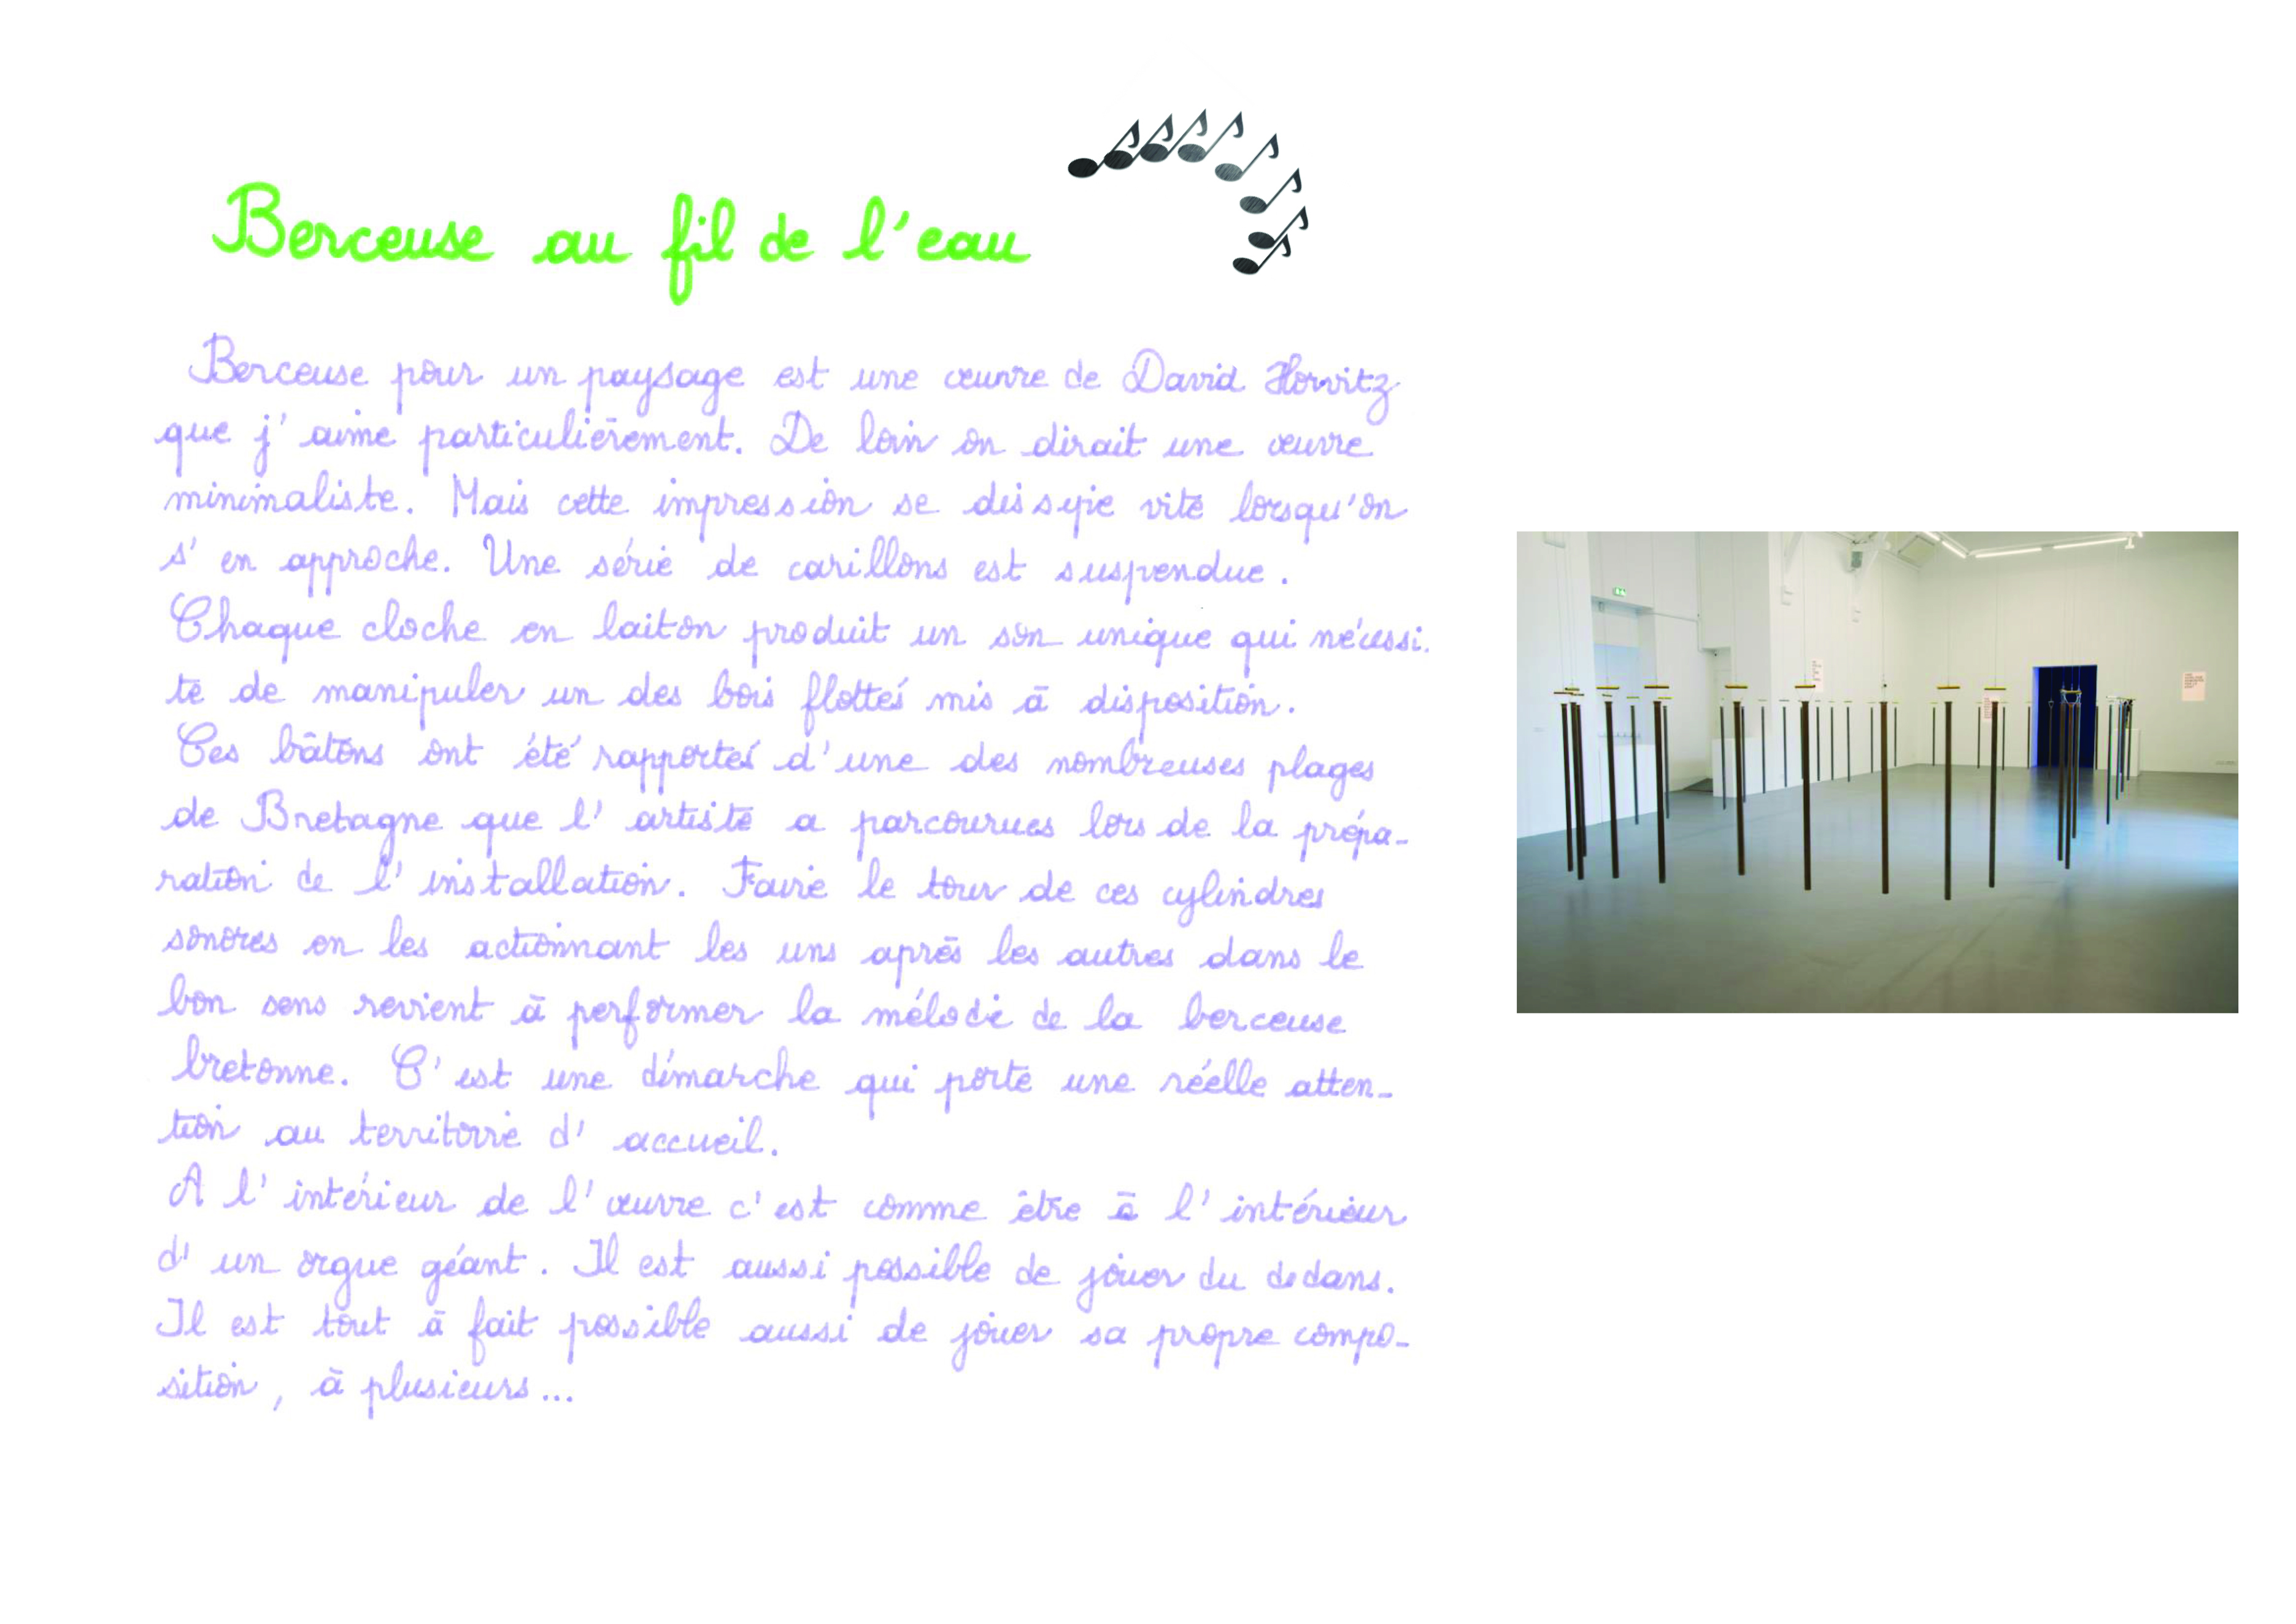 Berceuse au fil de l'eau
Berceuse pour un paysage est une œuvre de David Horvitz
que j'aime particulièrement. De loin on dirait une œuvre
minimaliste. Mais cette impression se dissipe vite lorsqu'on
s'en approche. Une série de carillons est suspendue.
Chaque cloche en laiton produit un son unique qui nécessi-
te de manipuler un des bois flottés mis à disposition.
Ces bâtons ont été rapportés d'une des nombreuses plages
de Bretagne que l'artiste a parcourues lors de la prépa-
ration de l'installation. Faire le tour de ces cylindres
sonores en les actionnant les uns après les autres dans le
bon sens revient à performer la mélodie de la berceuse
bretonne. C'est une démarche qui porte une réelle atten-
tion au territoire d'accueil.
A l'intérieur de l'œuvre c'est comme être à l'intérieur
d'un orgue géant. Il est aussi possible de jouer du dedans.
Il est tout à fait possible aussi de jouer sa propre compo-
sition, à plusieurs...